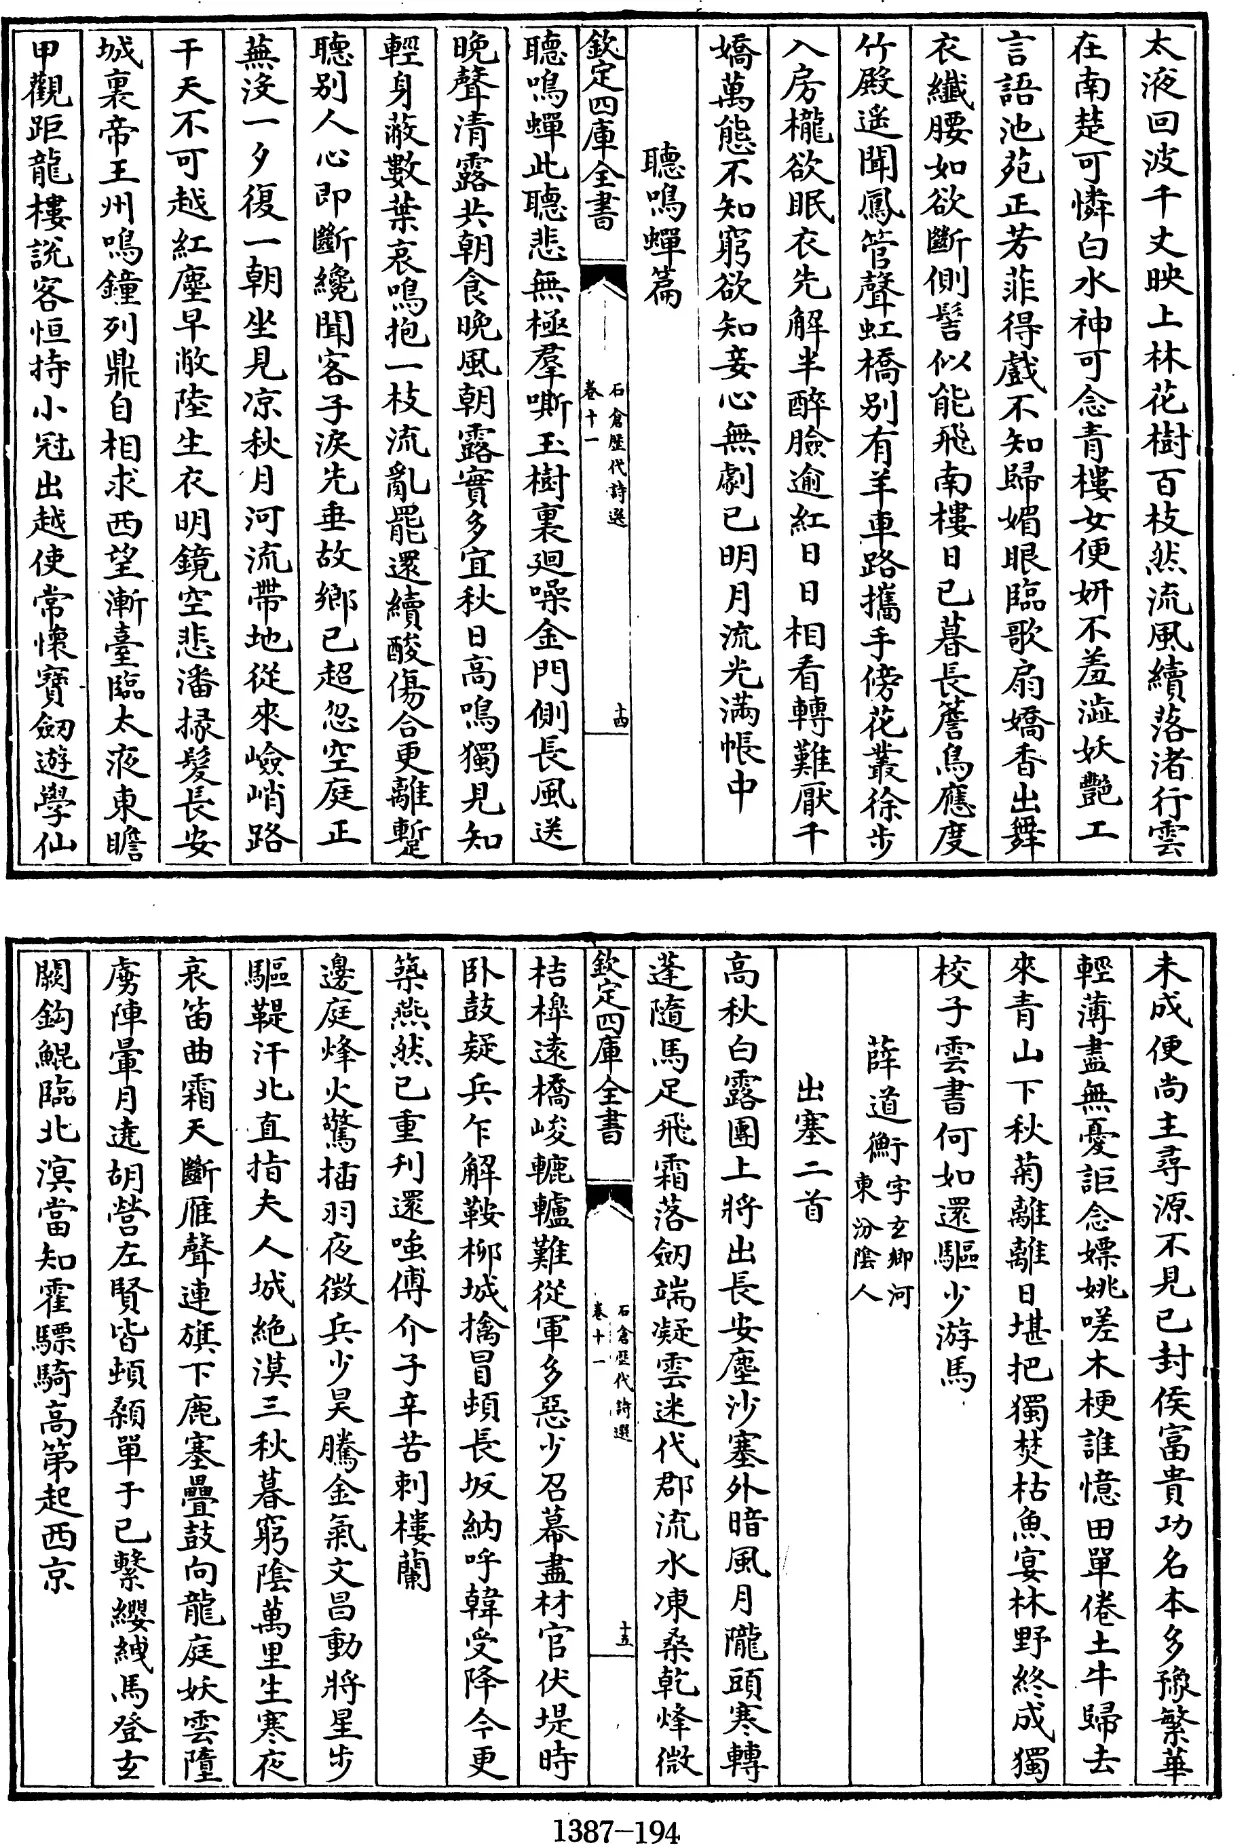 太液回波千丈映上林花樹百枝然流風續落渚行雲
在南楚可憐白水神可念青樓女便妍不羞澁妖艷工
言語池苑正芳菲得戲不知歸媚眼臨歌扇嬌香出舞
衣纖腰如欲斷側髻似能飛南樓日已暮長簷鳥應度
竹殿遥聞鳳管聲虹橋别有羊車路攜手傍花叢徐步
入房櫳欲眠衣先解半醉臉逾紅日日相看轉難厭千
嬌萬態不知窮欲知妾心無劇已明月流光滿帳中
聽鳴蟬篇
欽定四庫全書
石倉歴代詩選
卷十一
十四
聽鳴蟬此聽悲無極羣嘶玉樹裏廻噪金門側長風送
晚聲清露共朝食晚風朝露實多宜秋日高鳴獨見知
輕身蔽數葉哀鳴抱一枝流亂罷還續酸傷合更離蹔
聽别人心即斷纔聞客子淚先垂故鄉已超忽空庭正
蕪沒一夕復一朝坐見凉秋月河流帶地從來嶮峭路
干天不可越紅塵早敝陸生衣明鏡空悲潘掾髪長安
城裏帝王州鳴鐘列鼎自相求西望漸臺臨太液東瞻
甲觀距龍樓說客恒持小冠出越使常懷寶劒遊學仙
未成便尚主尋源不見已封侯富貴功名本多豫繁華
輕薄盡無憂詎念嫖姚嗟木梗誰憶田單倦土牛歸去
來青山下秋菊離離日堪把獨焚枯魚宴林野終成獨
校子雲書何如還驅少游馬
薛道衡字玄卿河
東汾陰人
出塞二首
高秋白露團上將出長安塵沙塞外暗風月隴頭寒轉
蓬隨馬足飛霜落劒端凝雲迷代郡流水凍桑乾烽微
欽定四庫全書
石倉歴代詩選
卷十一
十五
桔橰遠橋峻轆轤難從軍多惡少召募盡材官伏堤時
卧鼓疑兵乍解鞍柳城擒冒頓長坂納呼韓受降今更
築燕然已重刋還嗤傅介子辛苦刺樓蘭
邊庭烽火驚揷羽夜徵兵少昊騰金氣文昌動將星步
驅鞮汗北直指夫人城絶漠三秋暮窮陰萬里生寒夜
哀笛曲霜天斷雁聲連旗下鹿塞疊鼓向龍庭妖雲墮
虜陣暈月遶胡營左賢皆頓顙單于已繫纓紲馬登玄
闕鈎鯤臨北溟當知霍驃騎高第起西京
1387-194